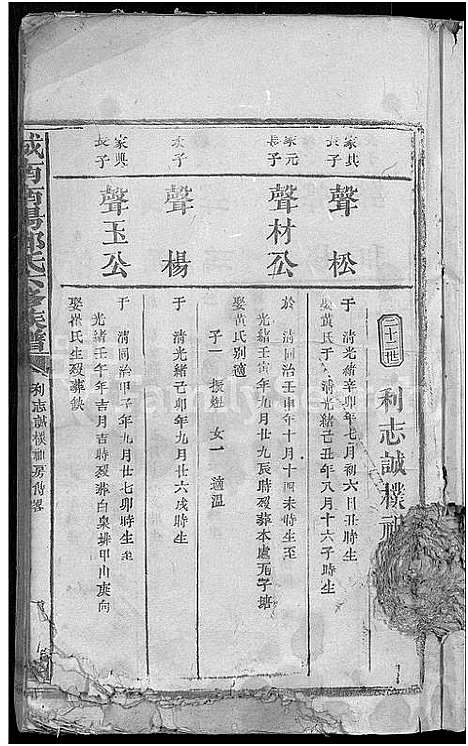 利志誠樸
二十三世
家其長子
聲松
于清光緒辛卯年七月初六日丑時生
娶黃氏于清光緒己丑年八月十六子時生
家元長子
聲材公
於清同治壬申年十月十四未時生至
光緒壬寅年九月廿九辰時歿葬本處
娶黃氏別適
子一振 女一適溫
次子
聲楊
于清光緒己卯年九月廿六戌時生
家興長子
聲玉公
于清同治甲子年九月廿七卯時生至
光緒壬午年吉月吉時歿葬白泉 甲山庚向
娶 氏生歿葬缺
氏六修族譜
利志誠樸 房傳